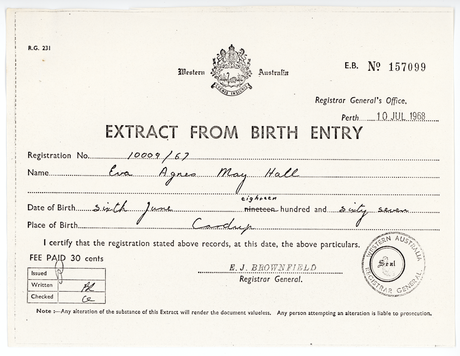 R.G. 231
Western Australia
E.B. No 157099
Registrar General's Office.
Perth 10 JUL 1968
EXTRACT FROM BIRTH ENTRY
Registration No. 10009/67
Name Eva Agnes May Hall
eighteen
Date of Birth sixth June nineteen hundred and sixty seven
Place of Birth Cardup
I certify that the registration stated above records, at this date, the above particulars.
FEE PAID 30 cents
E. J. BROWNFIELD
Registrar General.
Issued
Written
Checked
WESTERN AUSTRALIA
Seal
REGISTRAR GENERAL
Note :—Any alteration of the substance of this Extract will render the document valueless. Any person attempting an alteration is liable to prosecution.